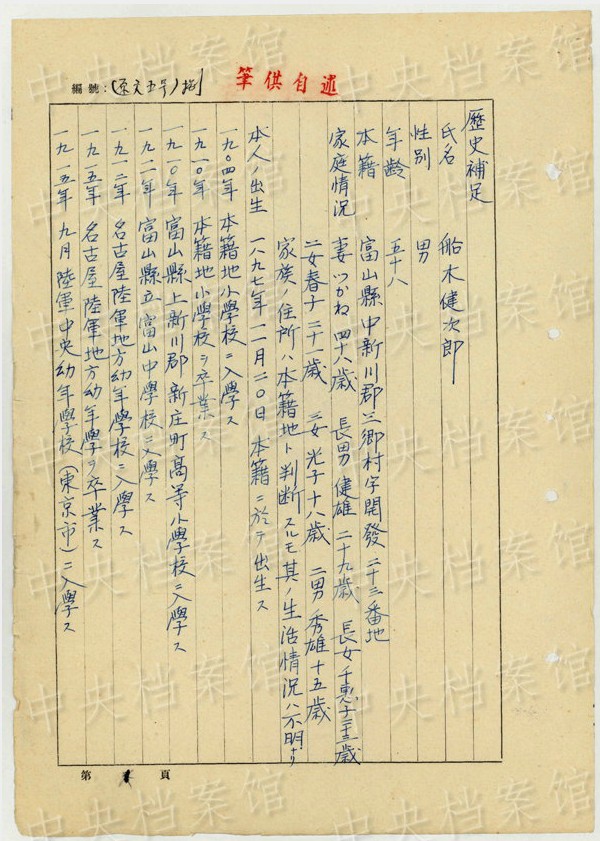 筆供自述
編號:(原文五号)
歷史補足
氏名　船木健次郎
性別　男
年齢　五十八
本籍　富山縣中新川郡三鄉村字開發二十三番地
家庭情況　妻ツかね四十八歲　長男健雄二十九歲　長女千惠子二十三歲
二女春子二十一歲　三女光子十八歲　二男秀雄十五歲
家族ノ住所ハ本籍地ト判断スルモ其ノ生活情況ハ不明ナリ
本人ノ出生　一八九七年一一月二〇日本籍ニ於テ出生ス
一九〇四年　本籍地小學校ニ入學ス
一九一〇年　本籍地小學校ヲ卒業ス
一九一〇年　富山縣上新川郡新庄町高等小學校ニ入學ス
一九一一年　富山縣立富山中學校ニ入學ス
一九一二年　名古屋陸軍地方幼年學校ニ入學ス
一九一五年　名古屋陸軍地方幼年學ヲ卒業ス
一九一五年　九月陸軍中央幼年學校(東京市)ニ入學ス
第 1 頁
中央档案馆